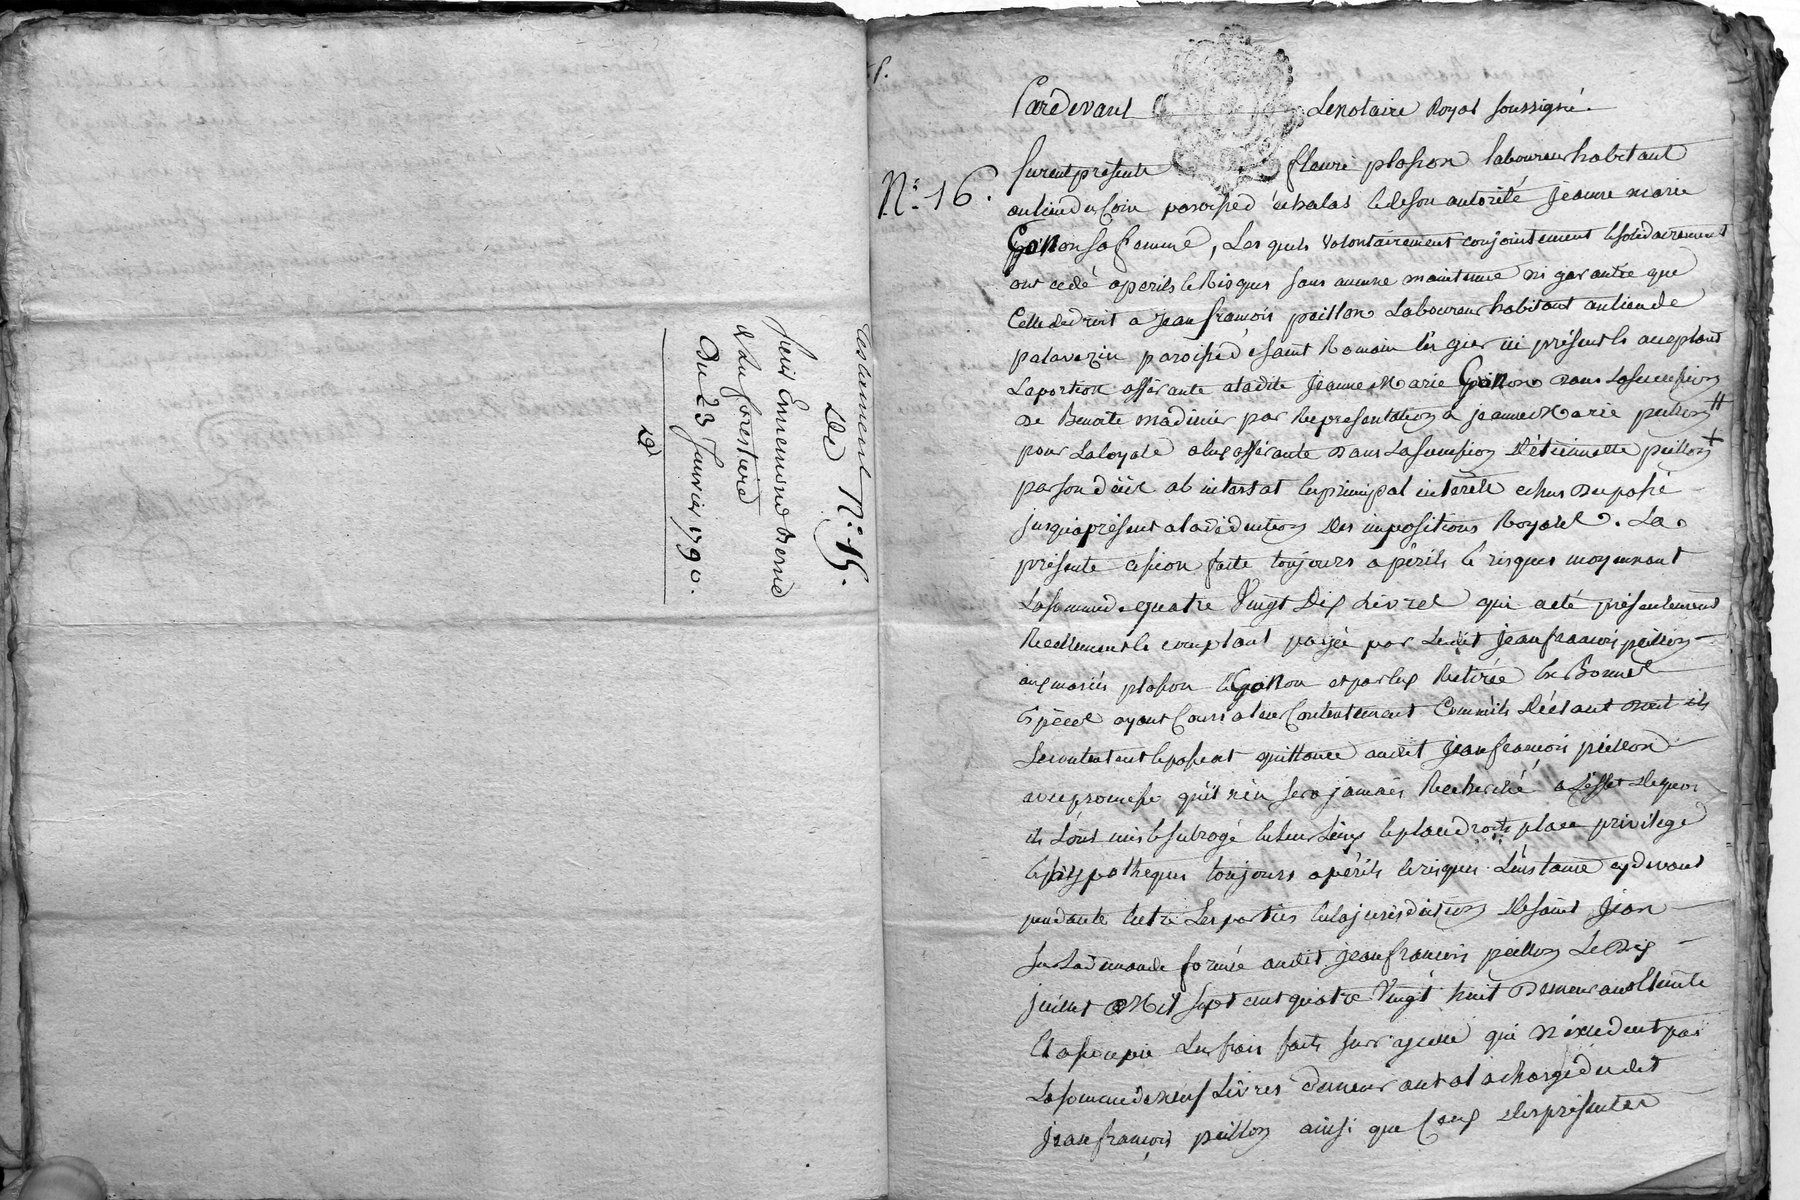 Testament N.º 15.
De
Sieur Ennemond
de la forestiere
Du 23 Janvier 1790.
Pardevant Le notaire Royal soussigné
N.º 16.
furent présents fleurie plasson laboureur habitant
au lieu du Coin paroisse d'echalas & de son autorité jeanne marie
Gonon sa femme, Lesquels volontairement conjointement & solidairement
ont cédé a perils & Risques sans aucune maintenue ni garantie que
Celle de droit a jean françois peillon Laboureur habitant au lieu de
palavezin paroisse de saint Romain en gier ici présent & acceptant
La portion afférante a ladite jeanne Marie Gonon dans la succession
de Benoite madinier par Représentation a jeanne Marie peillon #
pour La loyale a eux afférante dans La succession d'etiennette peillon +
par son décès ab intestat en principal intérêts echus du passé
jusqu'a présent a la déduction des impositions Royales. La
présente cession faite toujours a périls & risques moyennant
La somme de quatre Vingt Dix Livres qui a été présentement
Réellement & comptant payée par Ledit jean francois peillon
aux mariés plasson & Gonon et par eux Retirée en Bonnes
Espèces ayant Cours a leur Contentement Comme ils déclarent dont ils
se contentent & passent quittance audit jean francois peillon
avec promesse qu'il n'en sera jamais Recherché a L'effet de quoi
ils L'ont mis & subrogé en leur Lieu & place droits place privilege
& hypotheques toujours a périls & risques L'instance cydevant
pendante entre Les parties en la jurisdiction de saint jean
sur La demande formée audit jean francois peillon Le Dix
juillet Mil sept cent quatre Vingt huit Demeurant Eteinte
Et assoupie Les frais faits sur icelle qui n'excedent pas
La somme de neuf Livres demeurant a la charge du dit
jean françois peillon ainsi que Ceux des présentes